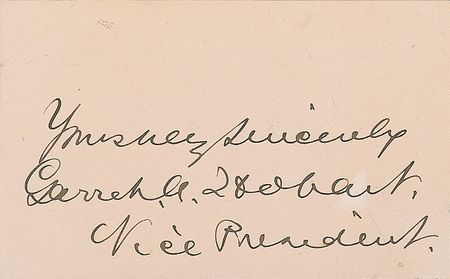 Yours very sincerely
Garret. A. Hobart.
Vice President.